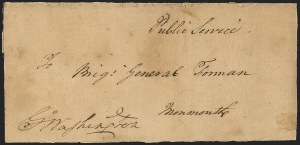 Public Service.
To
Brigr General Forman
Monmouth
Go Washington